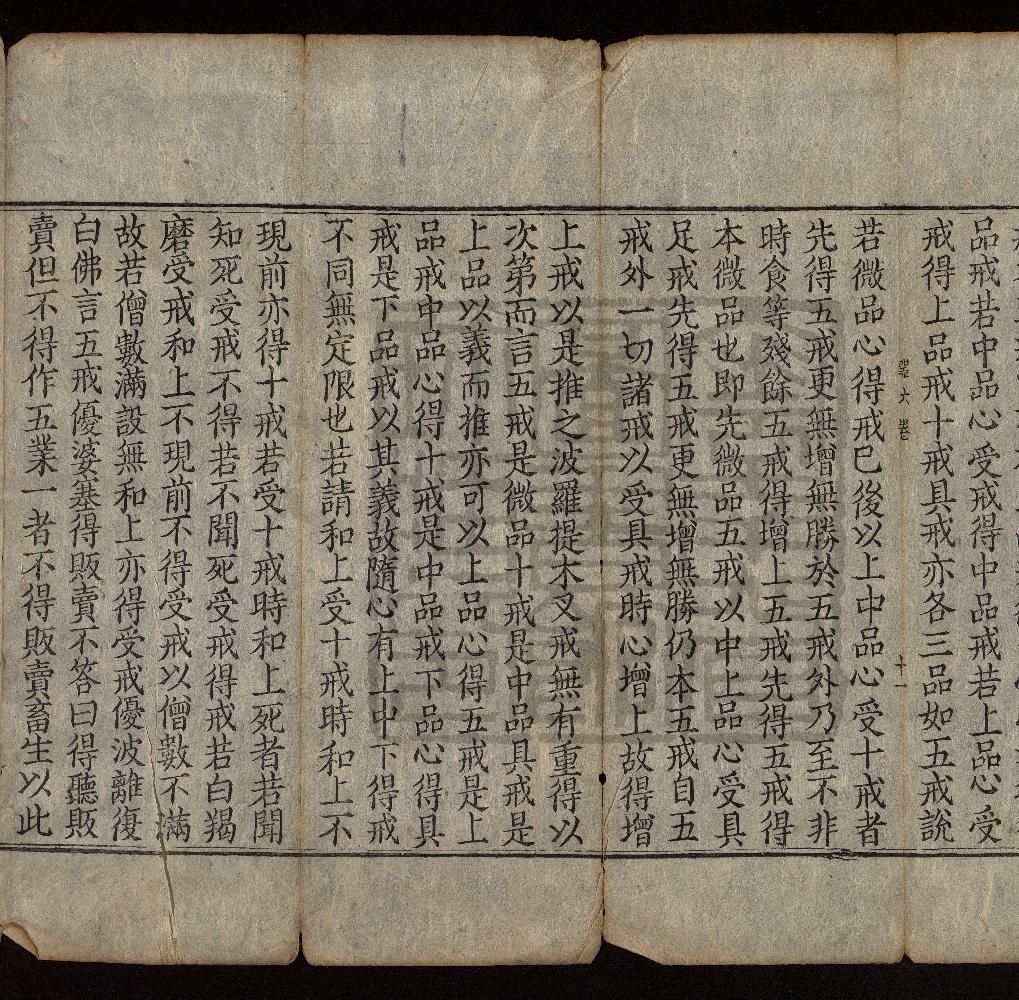 品戒若中品心受戒得中品戒若上品心受
戒得上品戒十戒具戒亦各三品如五戒說
若微品心得戒巳後以上中品心受十戒者
先得五戒更無增無勝於五戒外乃至不非
時食等殘餘五戒得增上五戒先得五戒得
本微品也即先微品五戒以中上品心受具
足戒先得五戒更無增無勝仍本五戒自五
戒外一切諸戒以受具戒時心增上故得增
上戒以是推之波羅提木叉戒無有重得以
次第而言五戒是微品十戒是中品具戒是
上品以義而推亦可以上品心得五戒是上
品戒中品心得十戒是中品戒下品心得具
戒是下品戒以其義故隨心有上中下得戒
不同無定限也若請和上受十戒時和上不
現前亦得十戒若受十戒時和上死者若聞
知死受戒不得若不聞死受戒得戒若白羯
磨受戒和上不現前不得受戒以僧數不滿
故若僧數滿設無和上亦得受戒優波離復
白佛言五戒優婆塞得販賣不答曰得聽販
賣但不得作五業一者不得販賣畜生以此